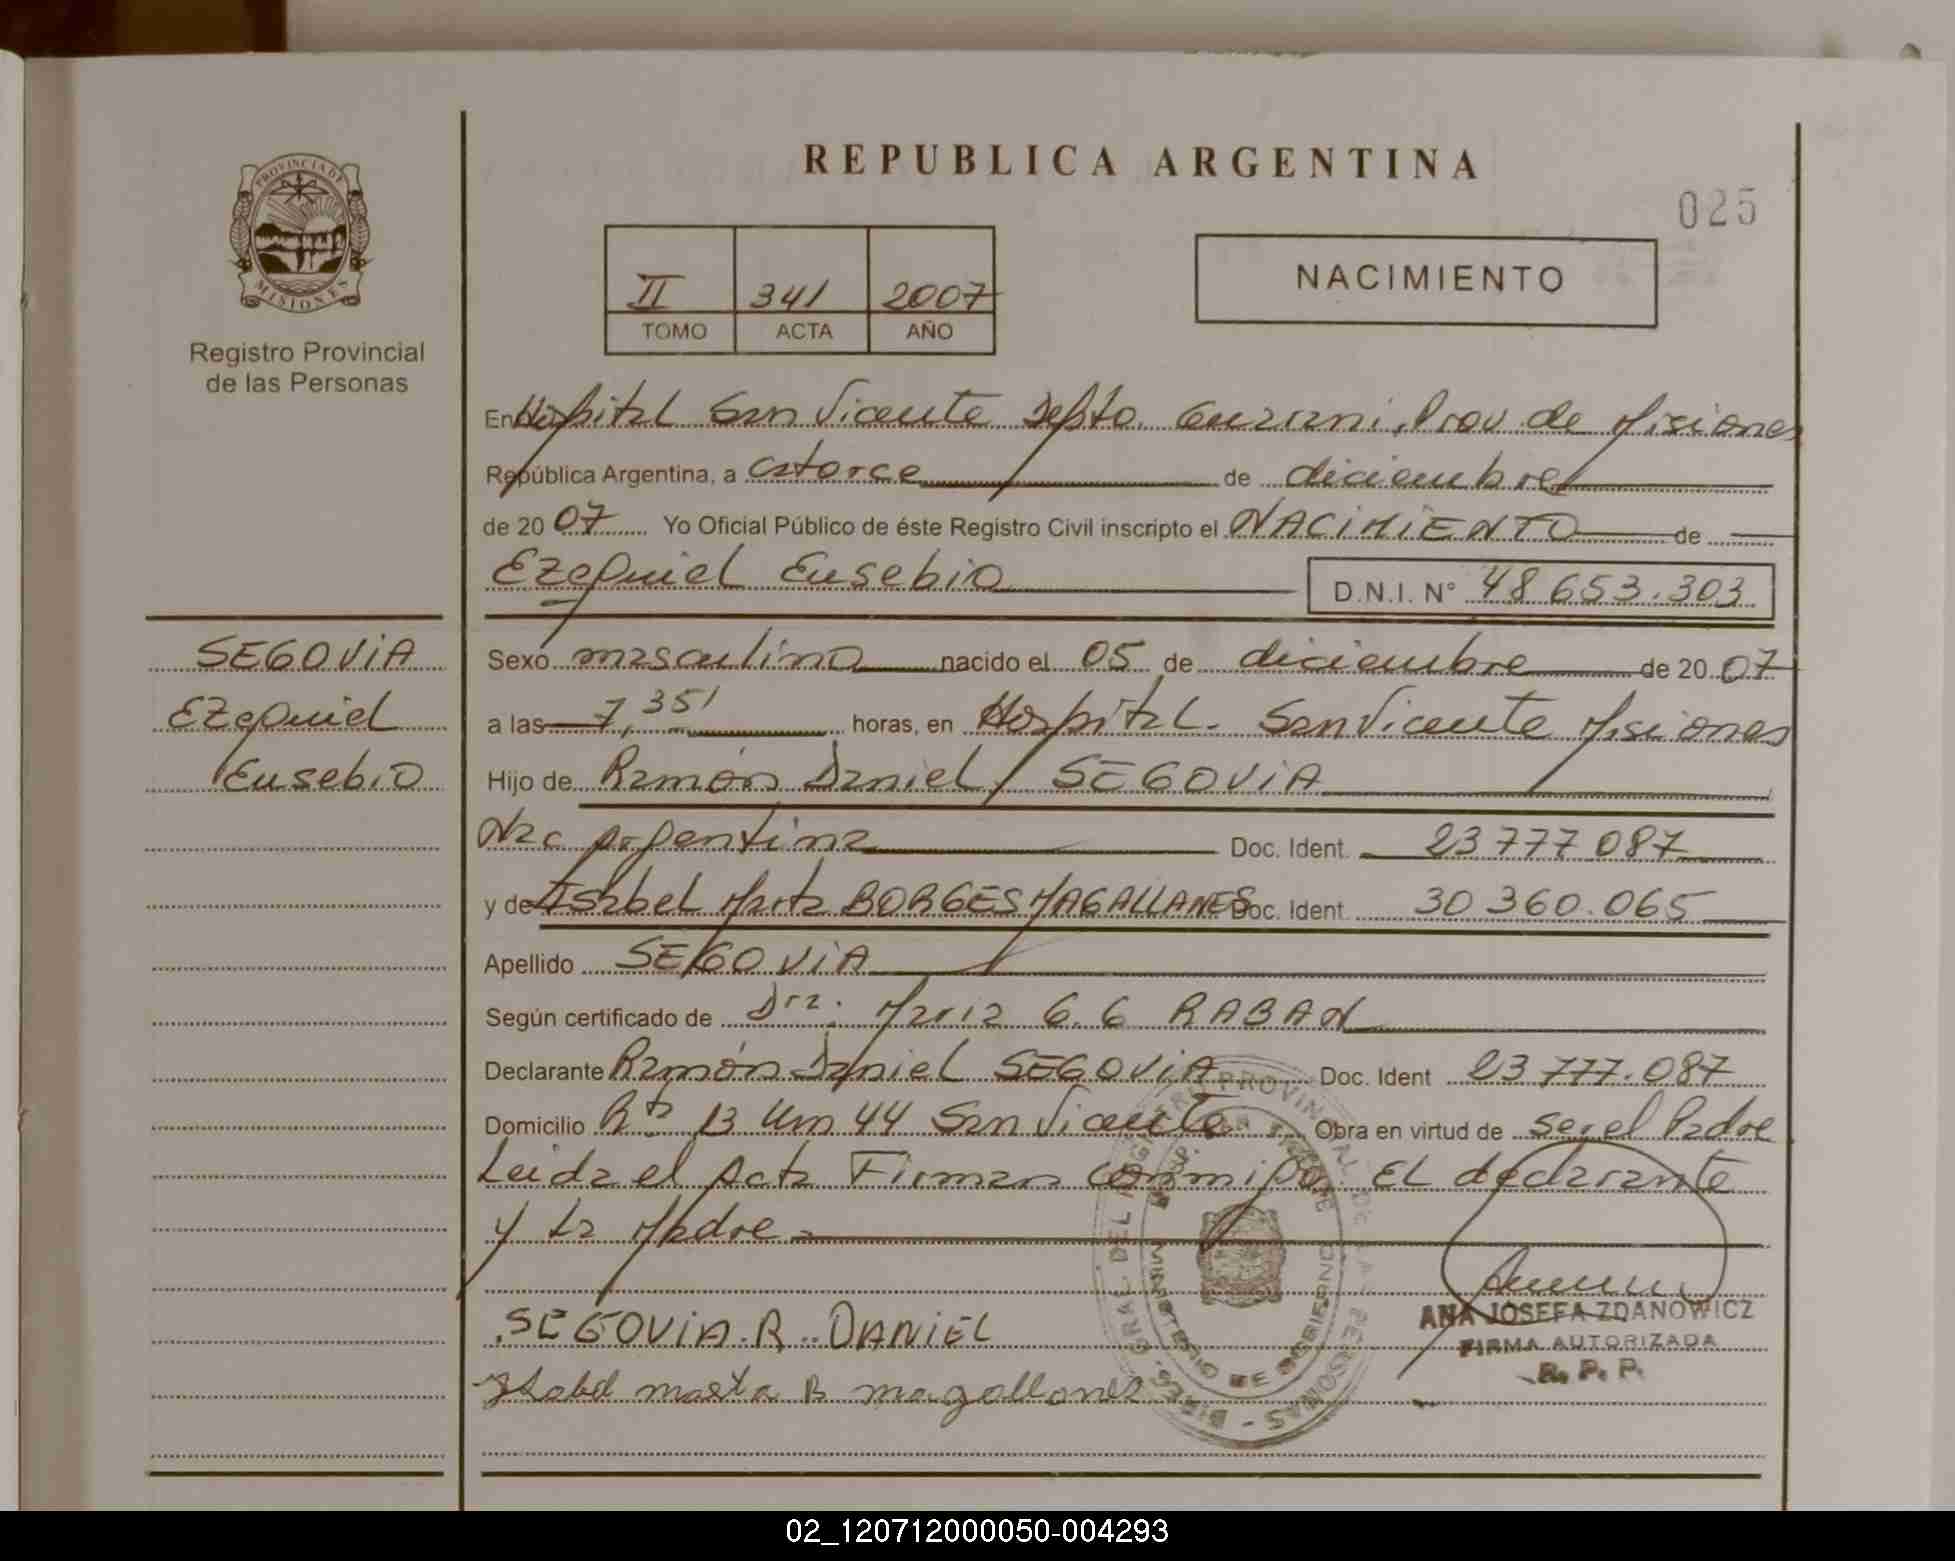 REPUBLICA ARGENTINA
025
PROVINCIA DE
MISIONES
Registro Provincial
de las Personas
II 341 2007
TOMO ACTA AÑO
NACIMIENTO
En Hospital San Vicente Depto. Guarani, Prov de Misiones
República Argentina, a catorce de diciembre
de 20 07 Yo Oficial Público de éste Registro Civil inscripto el NACIMIENTO de
Ezequiel Eusebio D.N.I. N° 48 653.303
SEGOVIA
Ezequiel
Eusebio
Sexo masculino nacido el 05 de diciembre de 20 07
a las 7,35' horas, en Hospital San Vicente Misiones
Hijo de Ramón Daniel SEGOVIA
Nac Argentina Doc. Ident. 23 777 087
y de Isabel Marta BORGES MAGALLANES Doc. Ident. 30 360.065
Apellido SEGOVIA
Según certificado de Dra. Maria G. G RABAN
Declarante Ramón Daniel SEGOVIA Doc. Ident 23 777.087
Domicilio Rta 13 Km 44 San Vicente Obra en virtud de ser el Padre
Leida el Acta Firman conmigo EL declarante
y La Madre
SEGOVIA. R. DANIEL
Isabel marta B magallanes
ANA JOSEFA ZDANOWICZ
FIRMA AUTORIZADA
R. P. P.
MINISTERIO DE GOBIERNO
02_120712000050-004293